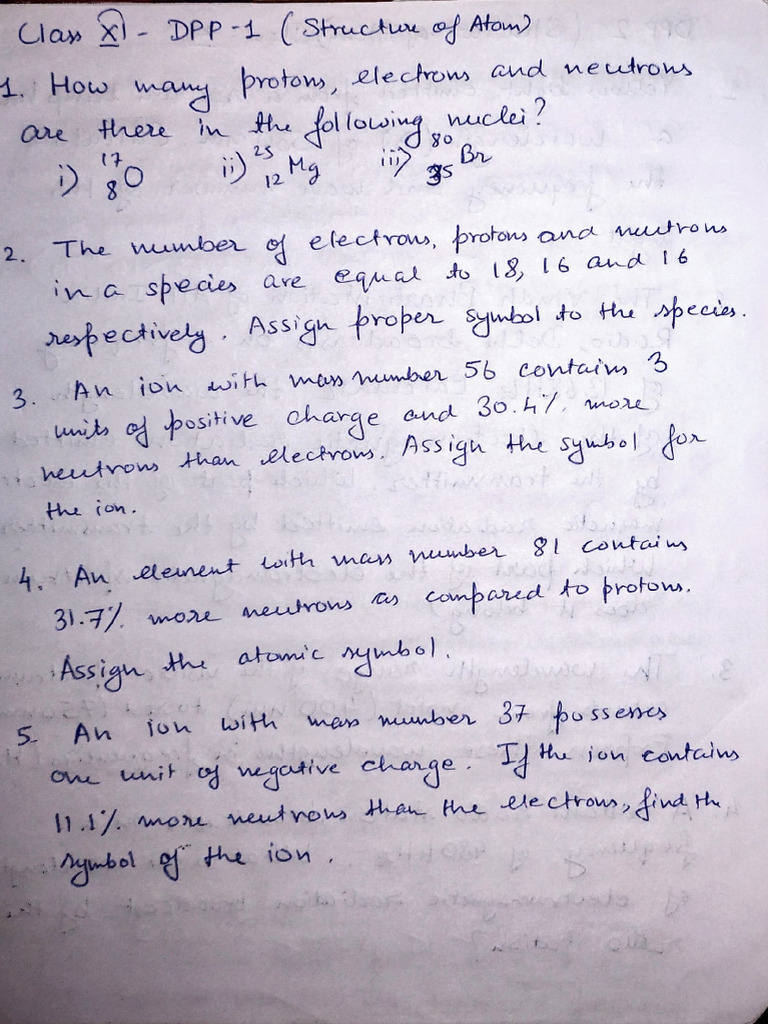 Class XI - DPP-1 (Structure of Atom)
1. How many protons, electrons and neutrons
are there in the following nuclei?
i) ¹⁷₈O ii) ²⁵₁₂Mg iii) ⁸⁰₃₅Br
2. The number of electrons, protons and neutrons
in a species are equal to 18, 16 and 16
respectively. Assign proper symbol to the species.
3. An ion with mass number 56 contains 3
units of positive charge and 30.4% more
neutrons than electrons. Assign the symbol for
the ion.
4. An element with mass number 81 contains
31.7% more neutrons as compared to protons.
Assign the atomic symbol.
5. An ion with mass number 37 possesses
one unit of negative charge. If the ion contains
11.1% more neutrons than the electrons, find the
symbol of the ion.